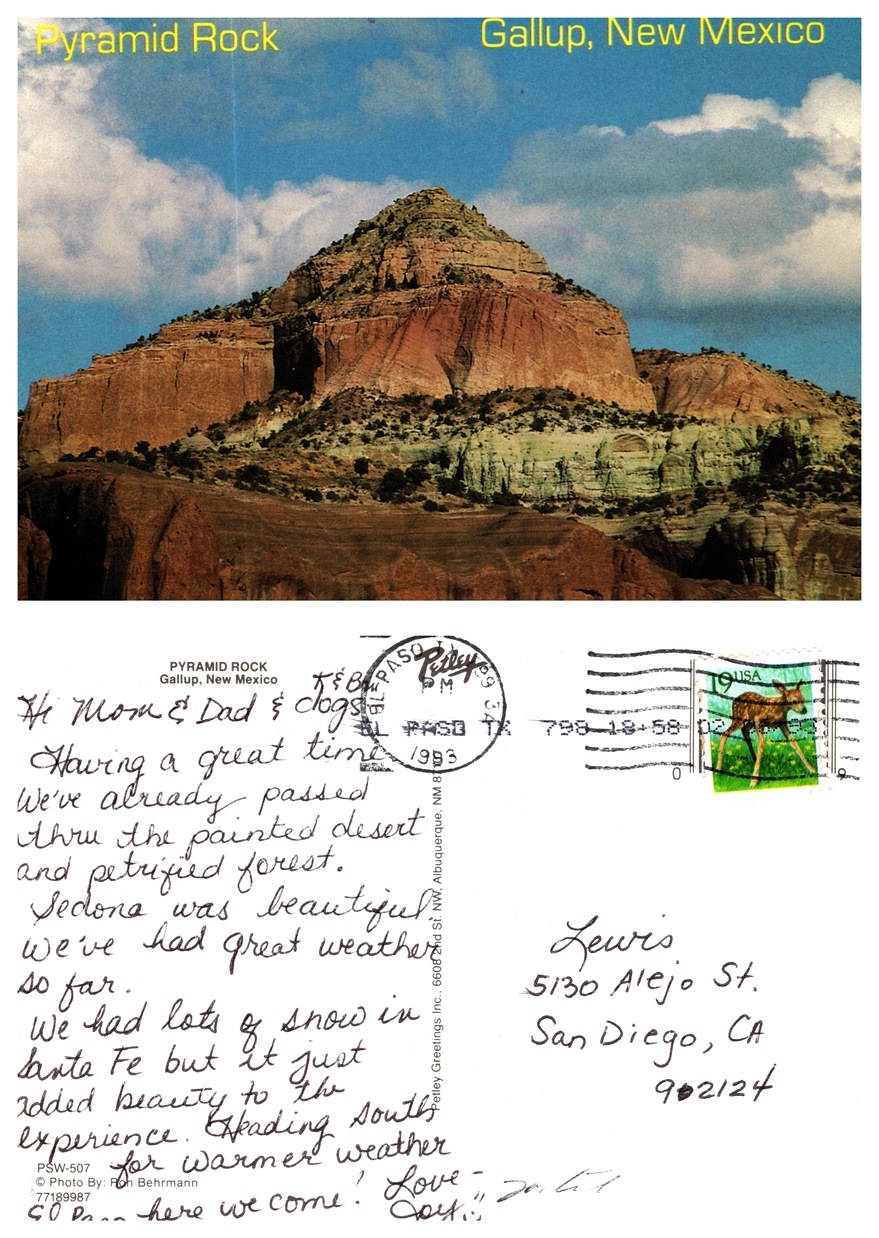 Pyramid Rock
Gallup, New Mexico
PYRAMID ROCK
Gallup, New Mexico
Petley
EL PASO
PM
1993
EL PASO TX 798 18:58 02
19 USA
K & B
Hi Mom & Dad & dogs
Having a great time
We've already passed
thru the painted desert
and petrified forest.
Sedona was beautiful.
We've had great weather
so far.
We had lots of snow in
Santa Fe but it just
added beauty to the
experience. Heading south
for warmer weather
El Paso here we come! Love-
Joy
Petley Greetings Inc., 6608 2nd St. NW, Albuquerque, NM
Lewis
5130 Alejo St.
San Diego, CA
902124
PSW-507
© Photo By: Ron Behrmann
77189987